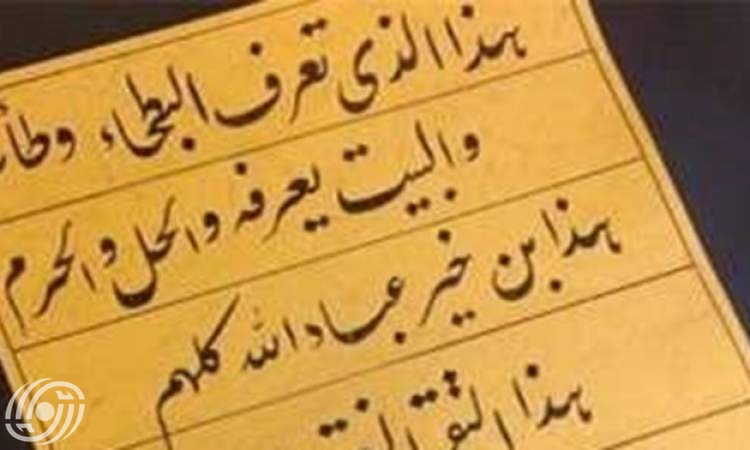 هذا الذي تعرف البطحاء وطأ
والبيت يعرفه والحل والحرم
هذا بن خير عباد الله كلهم
هذا التقي النقي